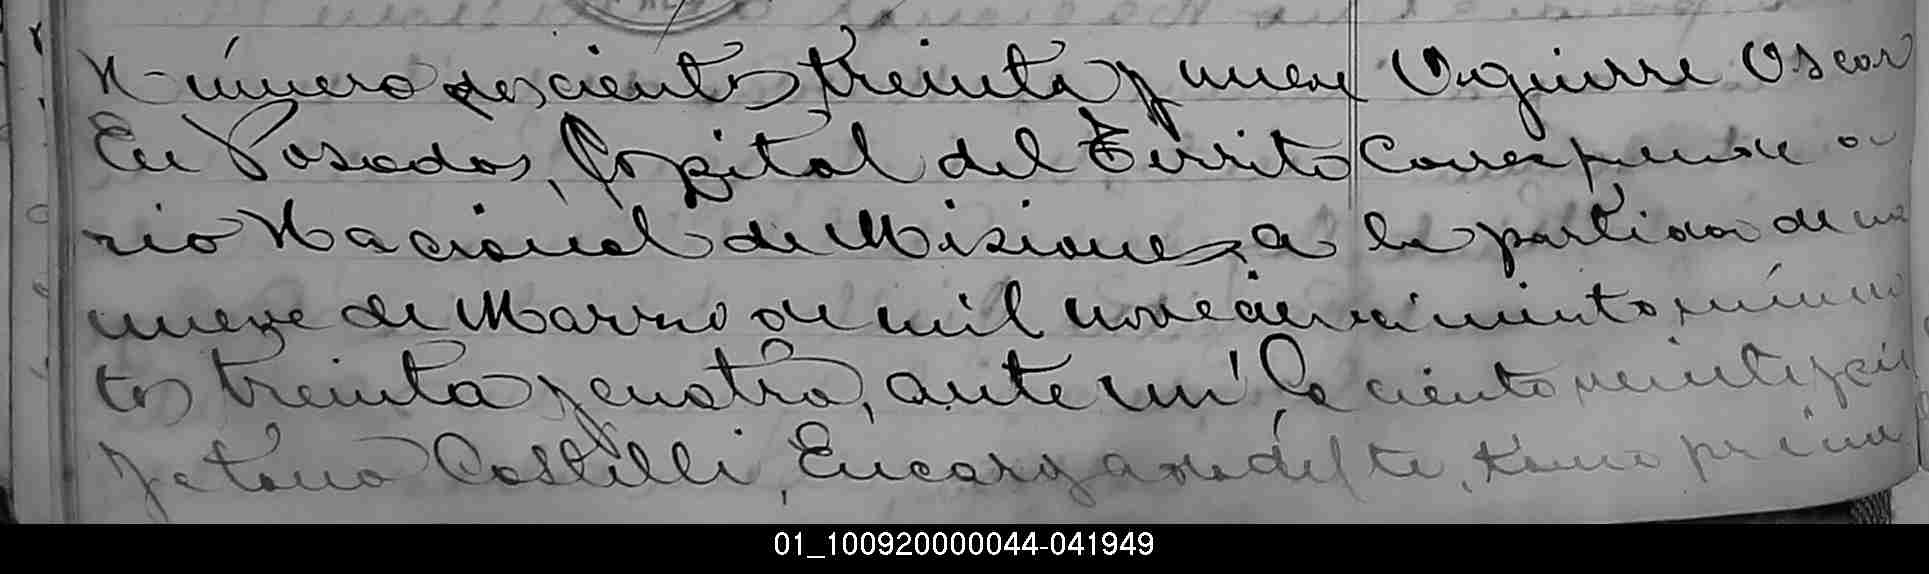 Número doscientos treinta y nueve Aguirre Oscar
En Posadas, Capital del Territo Corresponde a
rio Nacional de Misiones, a la partida de na
nueve de Marzo de mil novecien cimiento número
tos treinta y cuatro, ante mí, Ca ciento veintiseis
yetano Castelli, Encargado del te, tomo prime
01_100920000044-041949